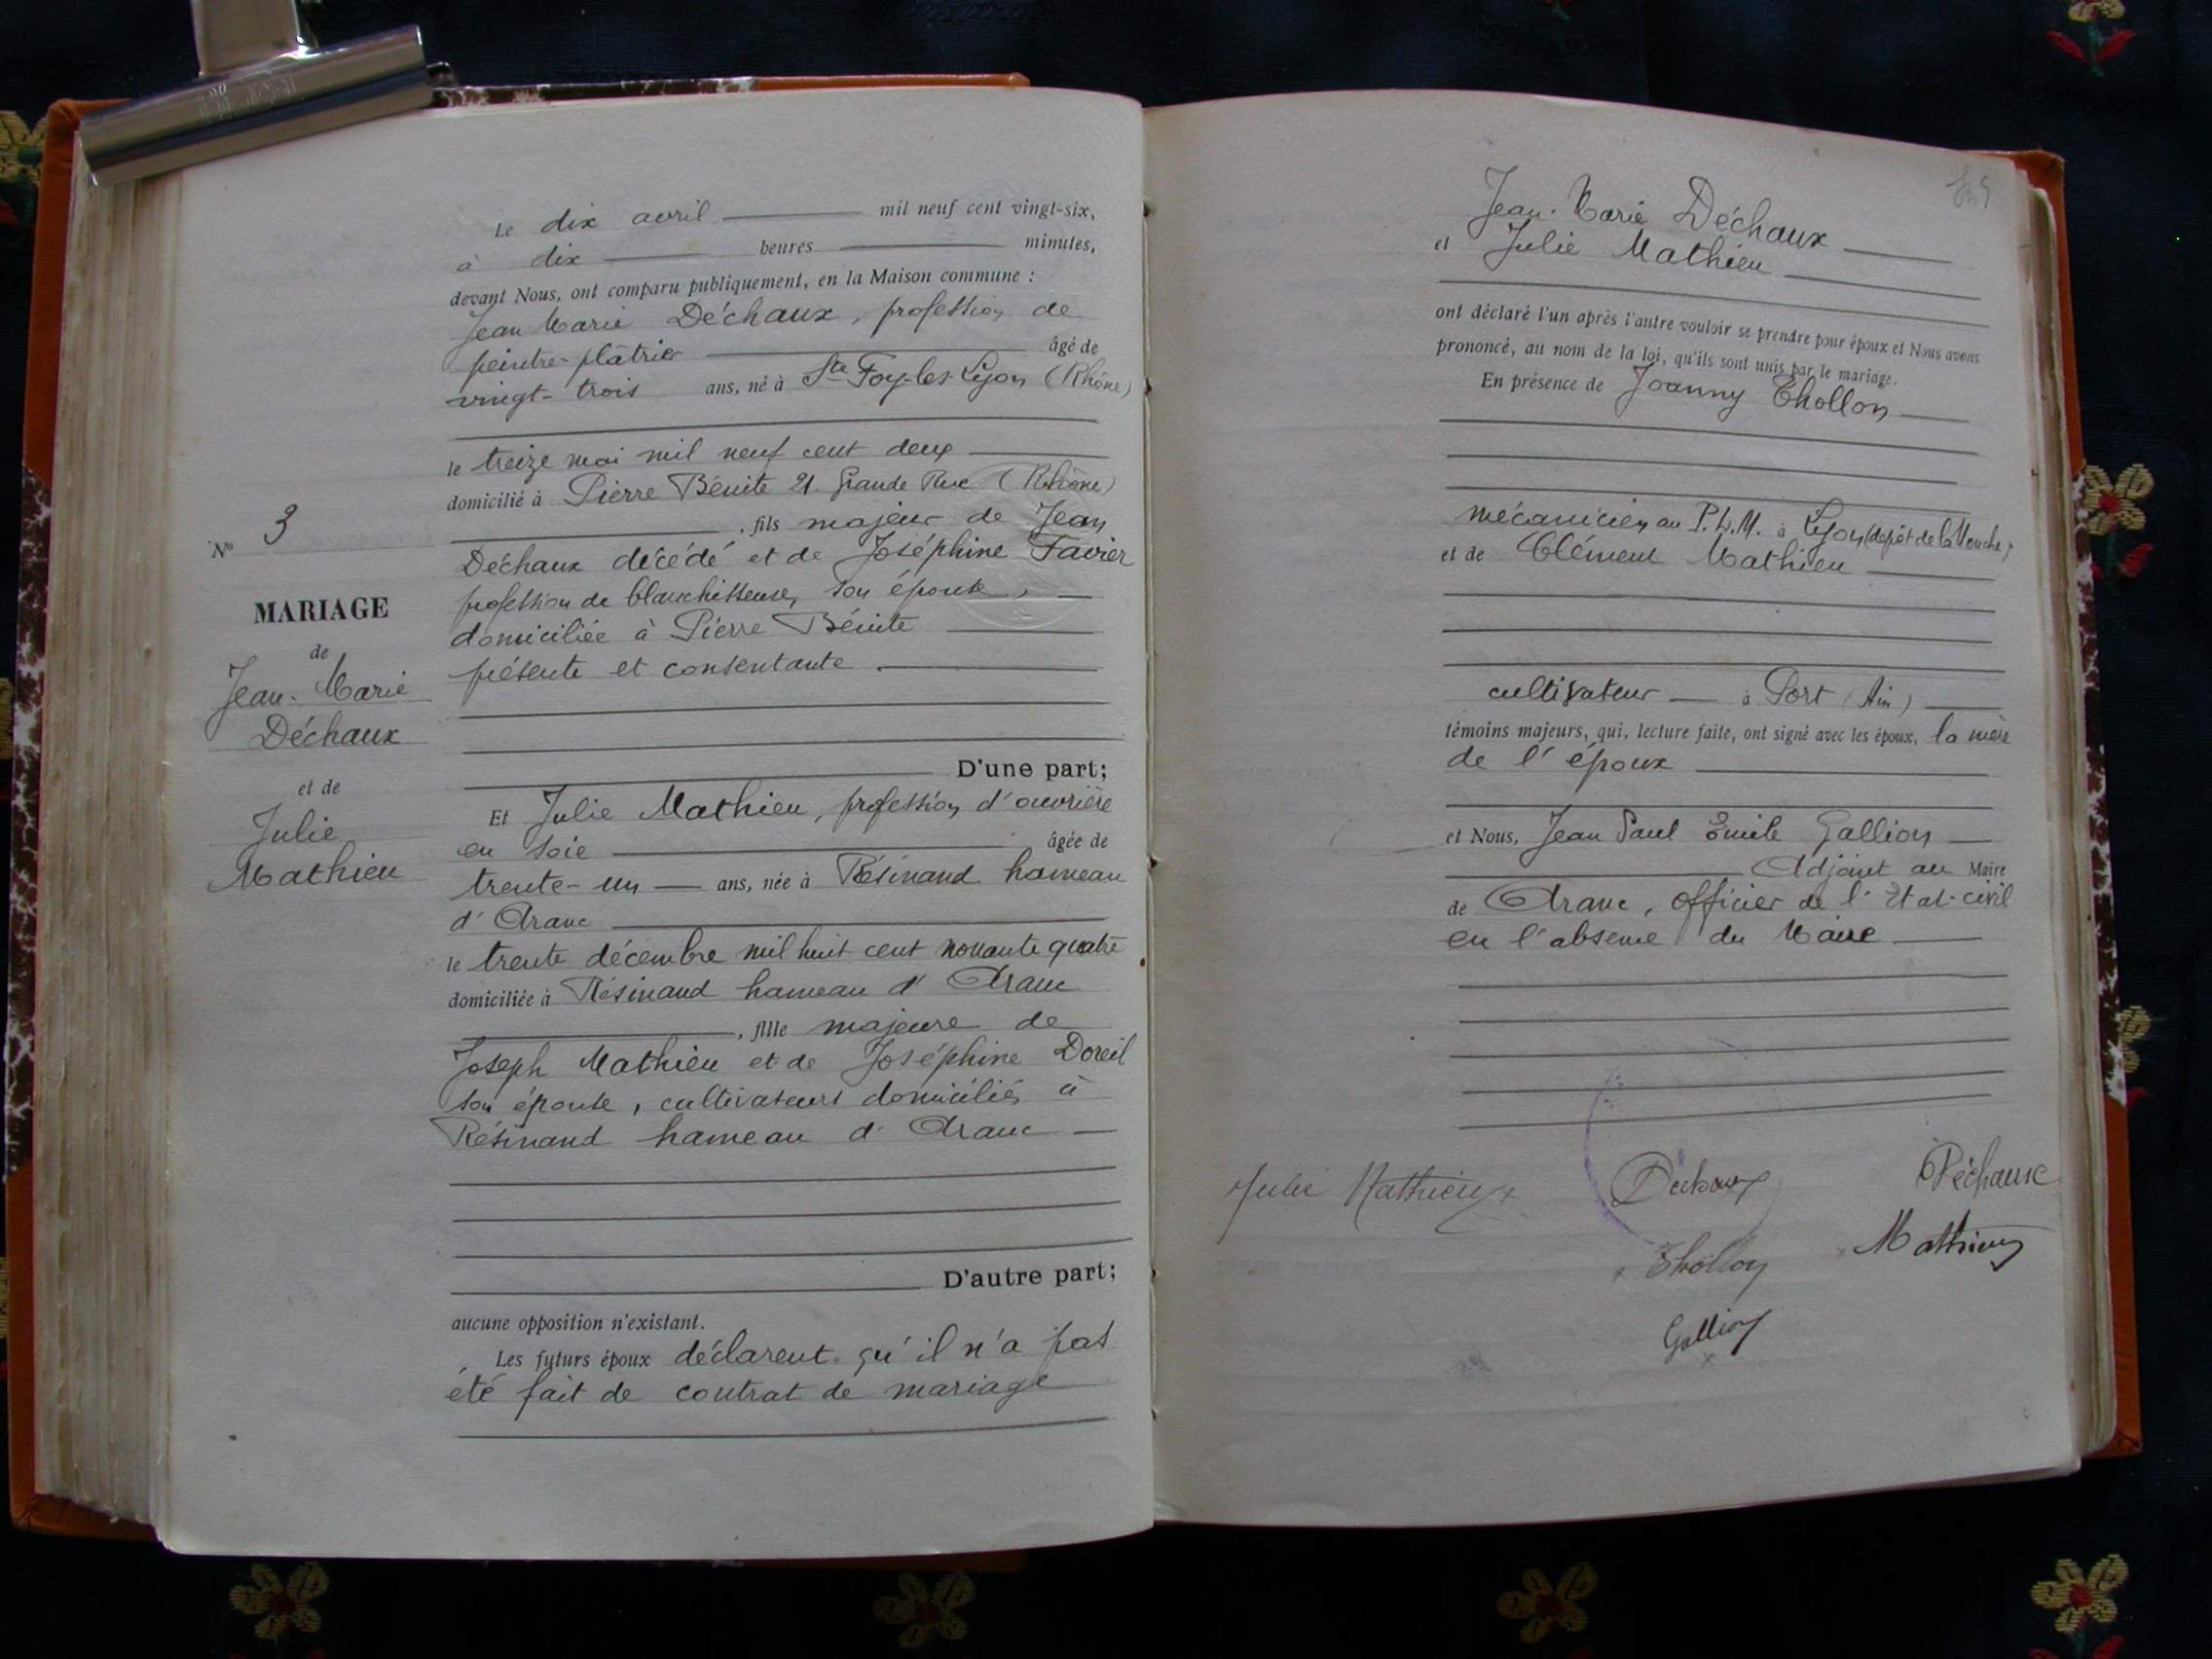 Le dix avril mil neuf cent vingt-six,
à dix heures minutes,
devant Nous, ont comparu publiquement, en la Maison commune :
Jean Marie Déchaux, profession de
peintre-plâtrier âgé de
vingt-trois ans, né à Ste Foy-les-Lyon (Rhône)
le treize mai mil neuf cent deux
domicilié à Pierre Bénite 21. Grande Rue (Rhône)
, fils majeur de Jean
Déchaux décédé et de Joséphine Favier
profession de blanchisseuse, son épouse,
domiciliée à Pierre Bénite
présente et consentante.
D'une part;
Et Julie Mathieu, profession d'ouvrière
en soie âgée de
trente-un ans, née à Résinand hameau
d'Aranc
le trente décembre mil huit cent nonante quatre
domiciliée à Résinand hameau d'Aranc
, fille majeure de
Joseph Mathieu et de Joséphine Doreil
son épouse, cultivateurs domiciliés à
Résinand hameau d'Aranc
D'autre part;
aucune opposition n'existant.
Les futurs époux déclarent qu'il n'a pas
été fait de contrat de mariage
No 3
MARIAGE
de
Jean-Marie
Déchaux
et de
Julie
Mathieu
Jean-Marie Déchaux
et Julie Mathieu
ont déclaré l'un après l'autre vouloir se prendre pour époux et Nous avons
prononcé, au nom de la loi, qu'ils sont unis par le mariage.
En présence de Joanny Thollon
mécanicien au P.L.M. à Lyon (dépôt de la Mouche),
et de Clément Mathieu
cultivateur à Port (Ain)
témoins majeurs, qui, lecture faite, ont signé avec les époux, la mère
de l'époux
et Nous, Jean Paul Emile Gallion
Adjoint au Maire
de Aranc, officier de l'Etat-civil
en l'absence du Maire
Julie Mathieu Déchaux Déchaux
Thollon Mathieu
Gallion